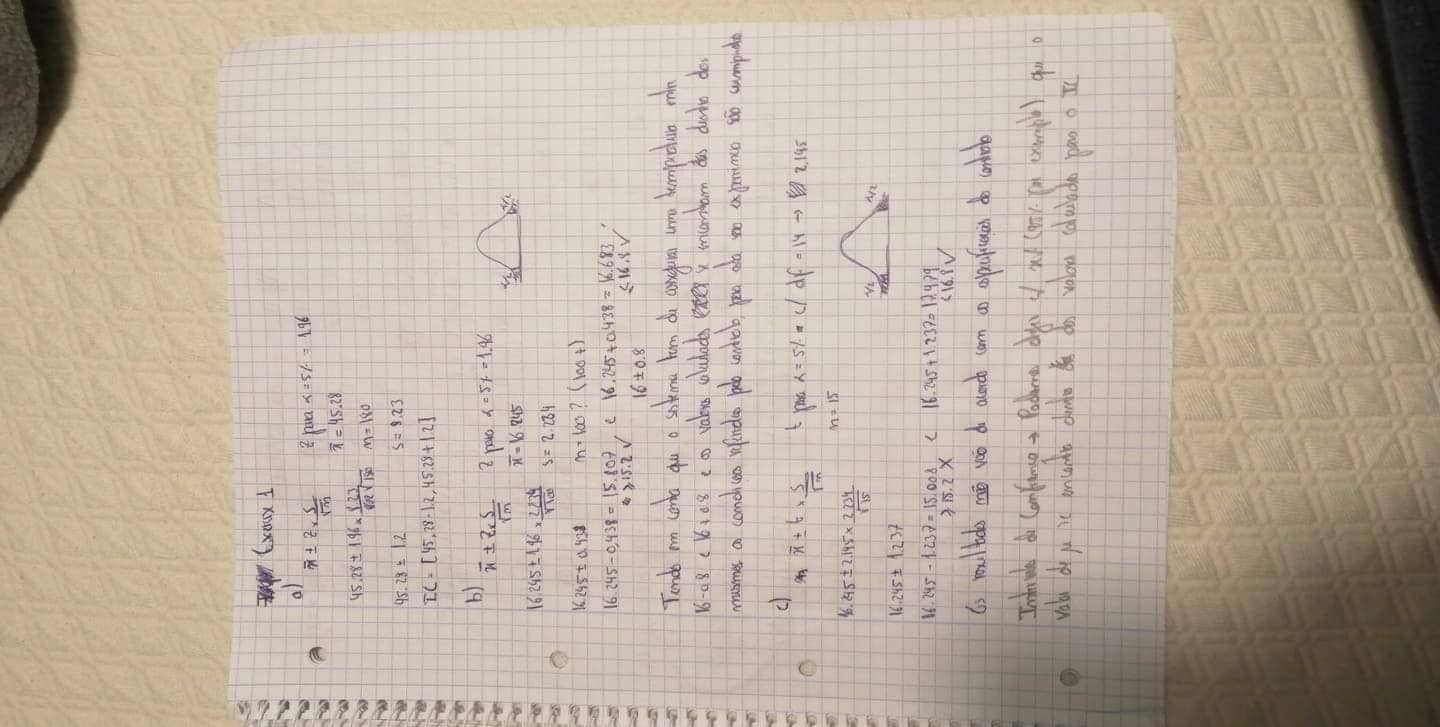 Exercício 1
a)
x̄ ± z × s/√n    z para α = 5% = 1.96
x̄ = 45.28
45.28 ± 1.96 × 8.23/√180    n = 180
45.28 ± 1.2    s = 8.23
IC = [45.28 - 1.2, 45.28 + 1.2]
b)
x̄ ± z × s/√n    z para α = 5% = 1.96
x̄ = 16.245
16.245 ± 1.96 × 2.234/√100    s = 2.234
16.245 ± 0.438    n = 100? (100 t)
16.245 - 0,438 = 15.807 e 16.245 + 0.438 = 16.683
≥ 15.2 ✓    ≤ 16.8 ✓
16 ± 0.8
Tendo em conta que o sistema tem de assegurar uma temperatura min
16-0.8 e 16+0.8 e os valores calculados encontram dentro dos
mesmos as condições pelo contrato, para são cumpridas
c)
x̄ ± t × s/√n    t para α = 5% c/ df = 14 → 2.145
n = 15
16.245 ± 2.145 × 2.234/√15
16.245 ± 1.237
16.245 - 1.237 = 15.008 e 16.245 + 1.237 = 17.479
≥ 15.2 X    ≤ 16.8 ✓
Os resultados não vão de acordo com as especificações do contrato
Intervalo de Confiança → Podemos dizer c/ (95% por exemplo) que o
valor de μ se encontra dentro dos valores calculados para o IC